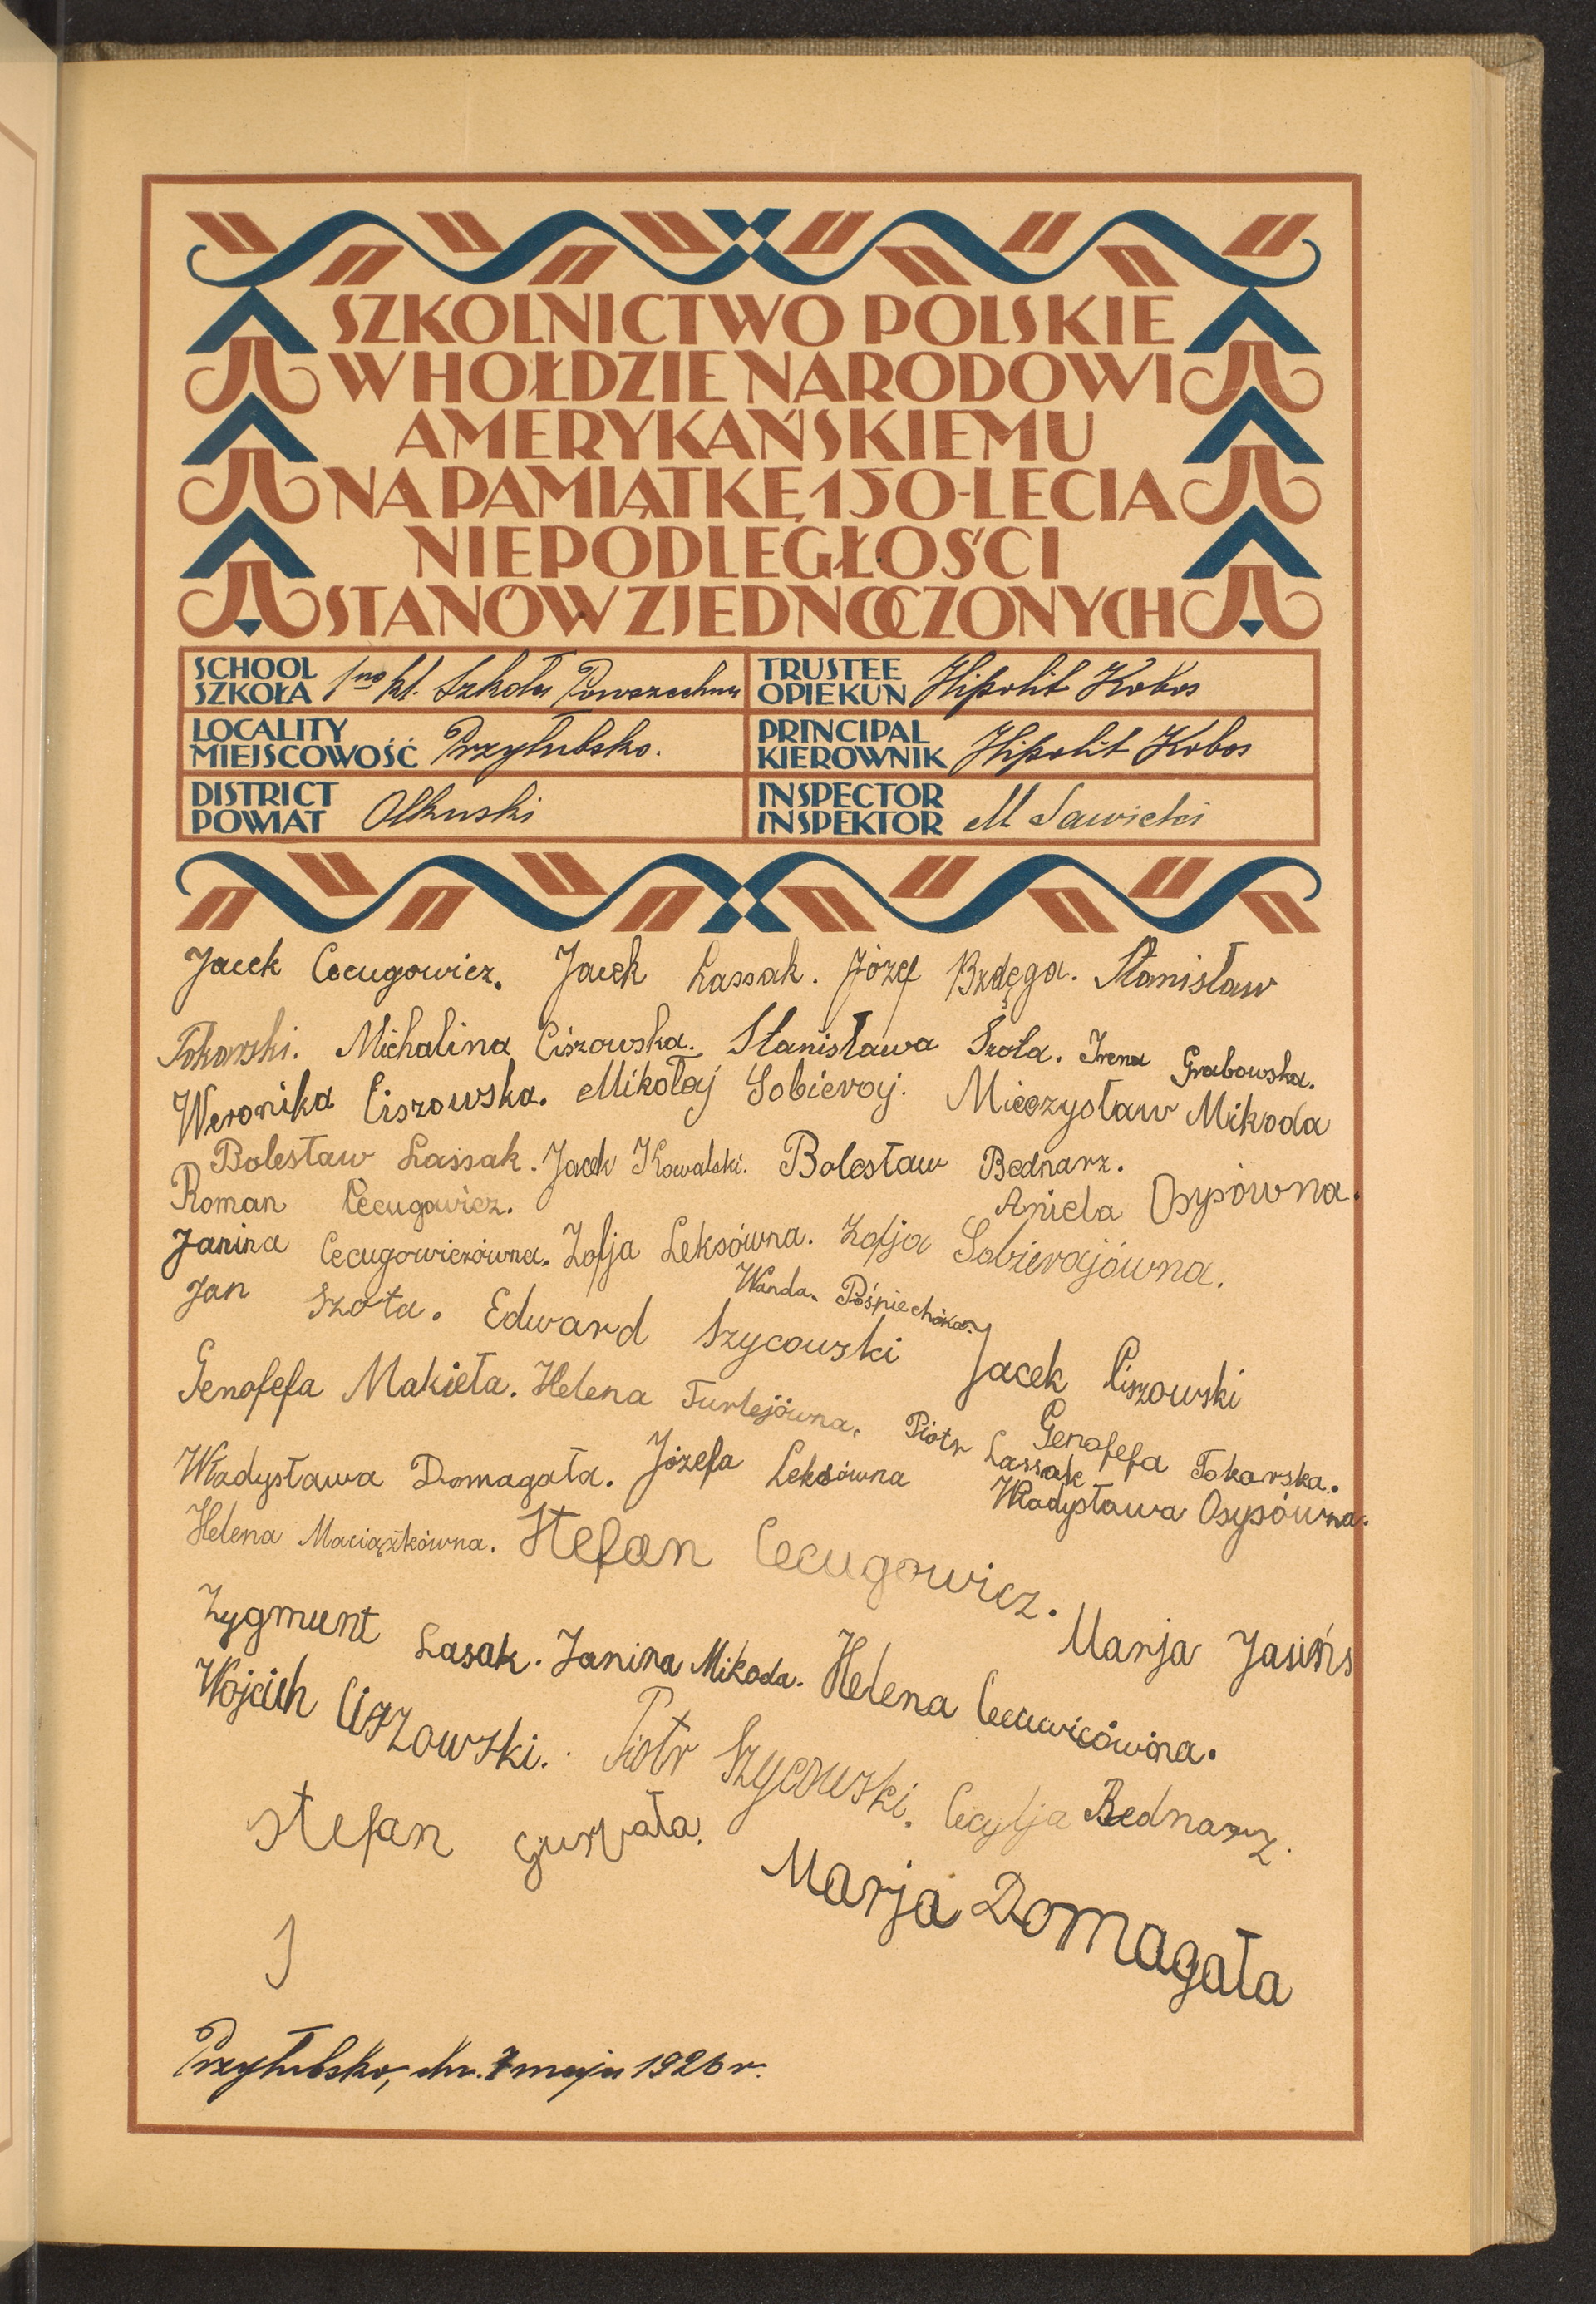 SZKOLNICTWO POLSKIE
W HOŁDZIE NARODOWI
AMERYKAŃSKIEMU
NA PAMIĄTKĘ 150-LECIA
NIEPODLEGŁOŚCI
STANÓW ZJEDNOCZONYCH
SCHOOL
SZKOŁA 1no kl. Szkoła Powszechna
TRUSTEE
OPIEKUN Hipolit Kobos
LOCALITY
MIEJSCOWOŚĆ Przyłubsko.
PRINCIPAL
KIEROWNIK Hipolit Kobos
DISTRICT
POWIAT Olkuski
INSPECTOR
INSPEKTOR M Sawicki
Jacek Cecugowicz. Jacek Lassak. Józef Bzdęga. Stanisław
Tokarski. Michalina Ciszowska. Stanisława Szota. Irena Grabowska.
Weronika Ciszowska. Mikołaj Sobieraj. Mieczysław Mikoda
Bolesław Lassak. Jacek Kowalski. Bolesław Bednarz.
Roman Cecugowicz. Aniela Osypówna.
Janina Cecugowiczówna. Zofja Leksówna. Zofja Sobierajówna.
Wanda Pośpiechówna.
Jan Szota. Edward Szycowski Jacek Ciszowski
Genofefa Makieła. Helena Turlejówna. Piotr Lassak Genofefa Tokarska.
Władysława Domagała. Józefa Leksówna Władysława Osypówna.
Helena Maciążkówna. Stefan Cecugowicz.
Marja Jasińs
Zygmunt Lasak. Janina Mikoda. Helena Cecuwicówna.
Wojcich Ciszowski. Piotr Szycowski. Cecylja Bednarz.
Stefan
Marja Domagała
J
Przyłubsko, dn. 7 maja 1926 r.